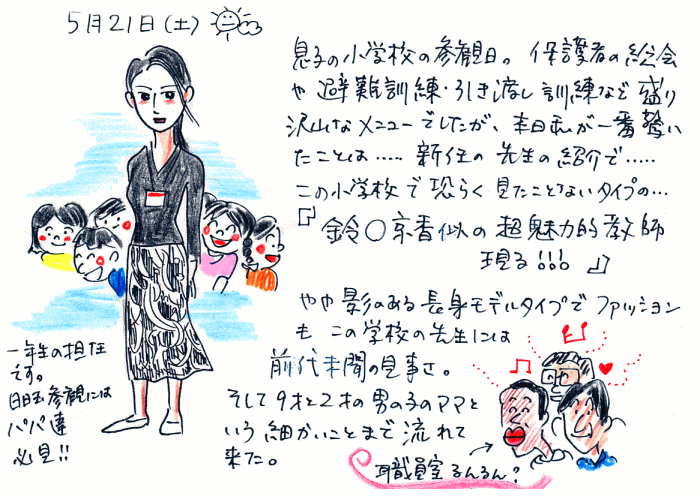 5月21日（土）
息子の小学校の参観日。 保護者の総会
や 避難訓練・引き渡し訓練など 盛り
沢山なメニューでしたが、本日私が一番驚い
たことは……新任の先生の紹介で……
この小学校で恐らく見たことないタイプの…
『鈴○京香似の超魅力的教師
現る!!!』
やや影のある長身モデルタイプで ファッション
も この学校の先生には
前代未聞の見事さ。
そして9才と2才の男の子のママと
いう細かいことまで流れて
来た。
一年生の担任
です。
パパ達
必見!!
職員室るんるん？